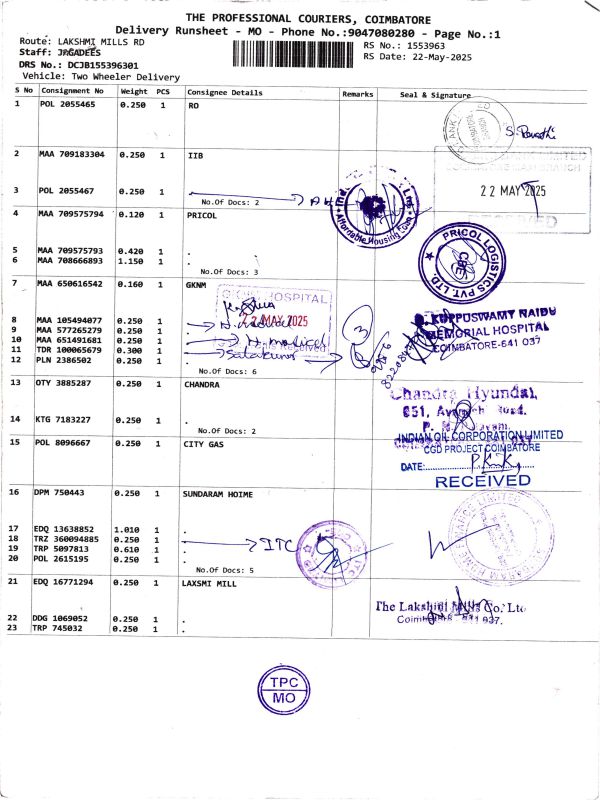 THE PROFESSIONAL COURIERS, COIMBATORE
Delivery Runsheet - MO - Phone No.:9047080280 - Page No.:1
Route: LAKSHMI MILLS RD
RS No.: 1553963
Staff: JAGADEES
RS Date: 22-May-2025
DRS No.: DCJB155396301
Vehicle: Two Wheeler Delivery
S No Consignment No Weight PCS Consignee Details Remarks Seal & Signature
1 POL 2055465 0.250 1 RO
2 MAA 709183304 0.250 1 IIB
22 MAY 2025
RECEIVED
3 POL 2055467 0.250 1 .
No.Of Docs: 2
Affordable Housing
4 MAA 709575794 0.120 1 PRICOL
PRICOL LOGISTICS PVT. LTD.
CBE
5 MAA 709575793 0.420 1 .
6 MAA 708666893 1.150 1 .
No.Of Docs: 3
7 MAA 650616542 0.160 1 GKNM
HOSPITAL
22 MAY 2025
G. KUPPUSWAMY NAIDU
MEMORIAL HOSPITAL
COIMBATORE-641 037
8 MAA 105494077 0.250 1 .
9 MAA 577265279 0.250 1 .
10 MAA 651491681 0.250 1 .
H. medical
11 TDR 100065679 0.300 1 .
12 PLN 2386502 0.250 1 .
No.Of Docs: 6
13 OTY 3885287 0.250 1 CHANDRA
Chandra Hyundai,
851, Avanashi Road,
14 KTG 7183227 0.250 1 .
No.Of Docs: 2
15 POL 8096667 0.250 1 CITY GAS
INDIAN OIL CORPORATION LIMITED
CGD PROJECT COIMBATORE
DATE:
RECEIVED
16 DPM 750443 0.250 1 SUNDARAM HOIME
17 EDQ 13638852 1.010 1 .
18 TRZ 360094885 0.250 1 .
ITC
19 TRP 5097813 0.610 1 .
20 POL 2615195 0.250 1 .
No.Of Docs: 5
21 EDQ 16771294 0.250 1 LAXSMI MILL
The Lakshmi Mills Co. Ltd
Coimbatore - 641 037.
22 DDG 1069052 0.250 1 .
23 TRP 745032 0.250 1 .
TPC
MO